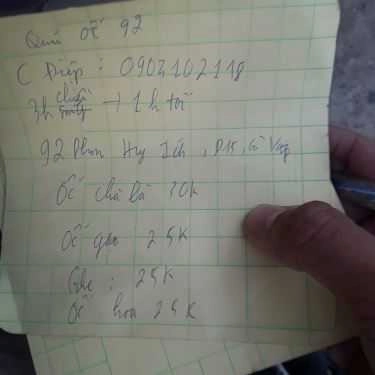 Quán ốc 92
C Điệp: 0903102118
3h chiều → 1h tối
92 Phan Huy Ích, P15, Gò Vấp
Ốc chà là 70k
Ốc gạo 25K
Ghẹ: 25K
Ốc hoa 25K